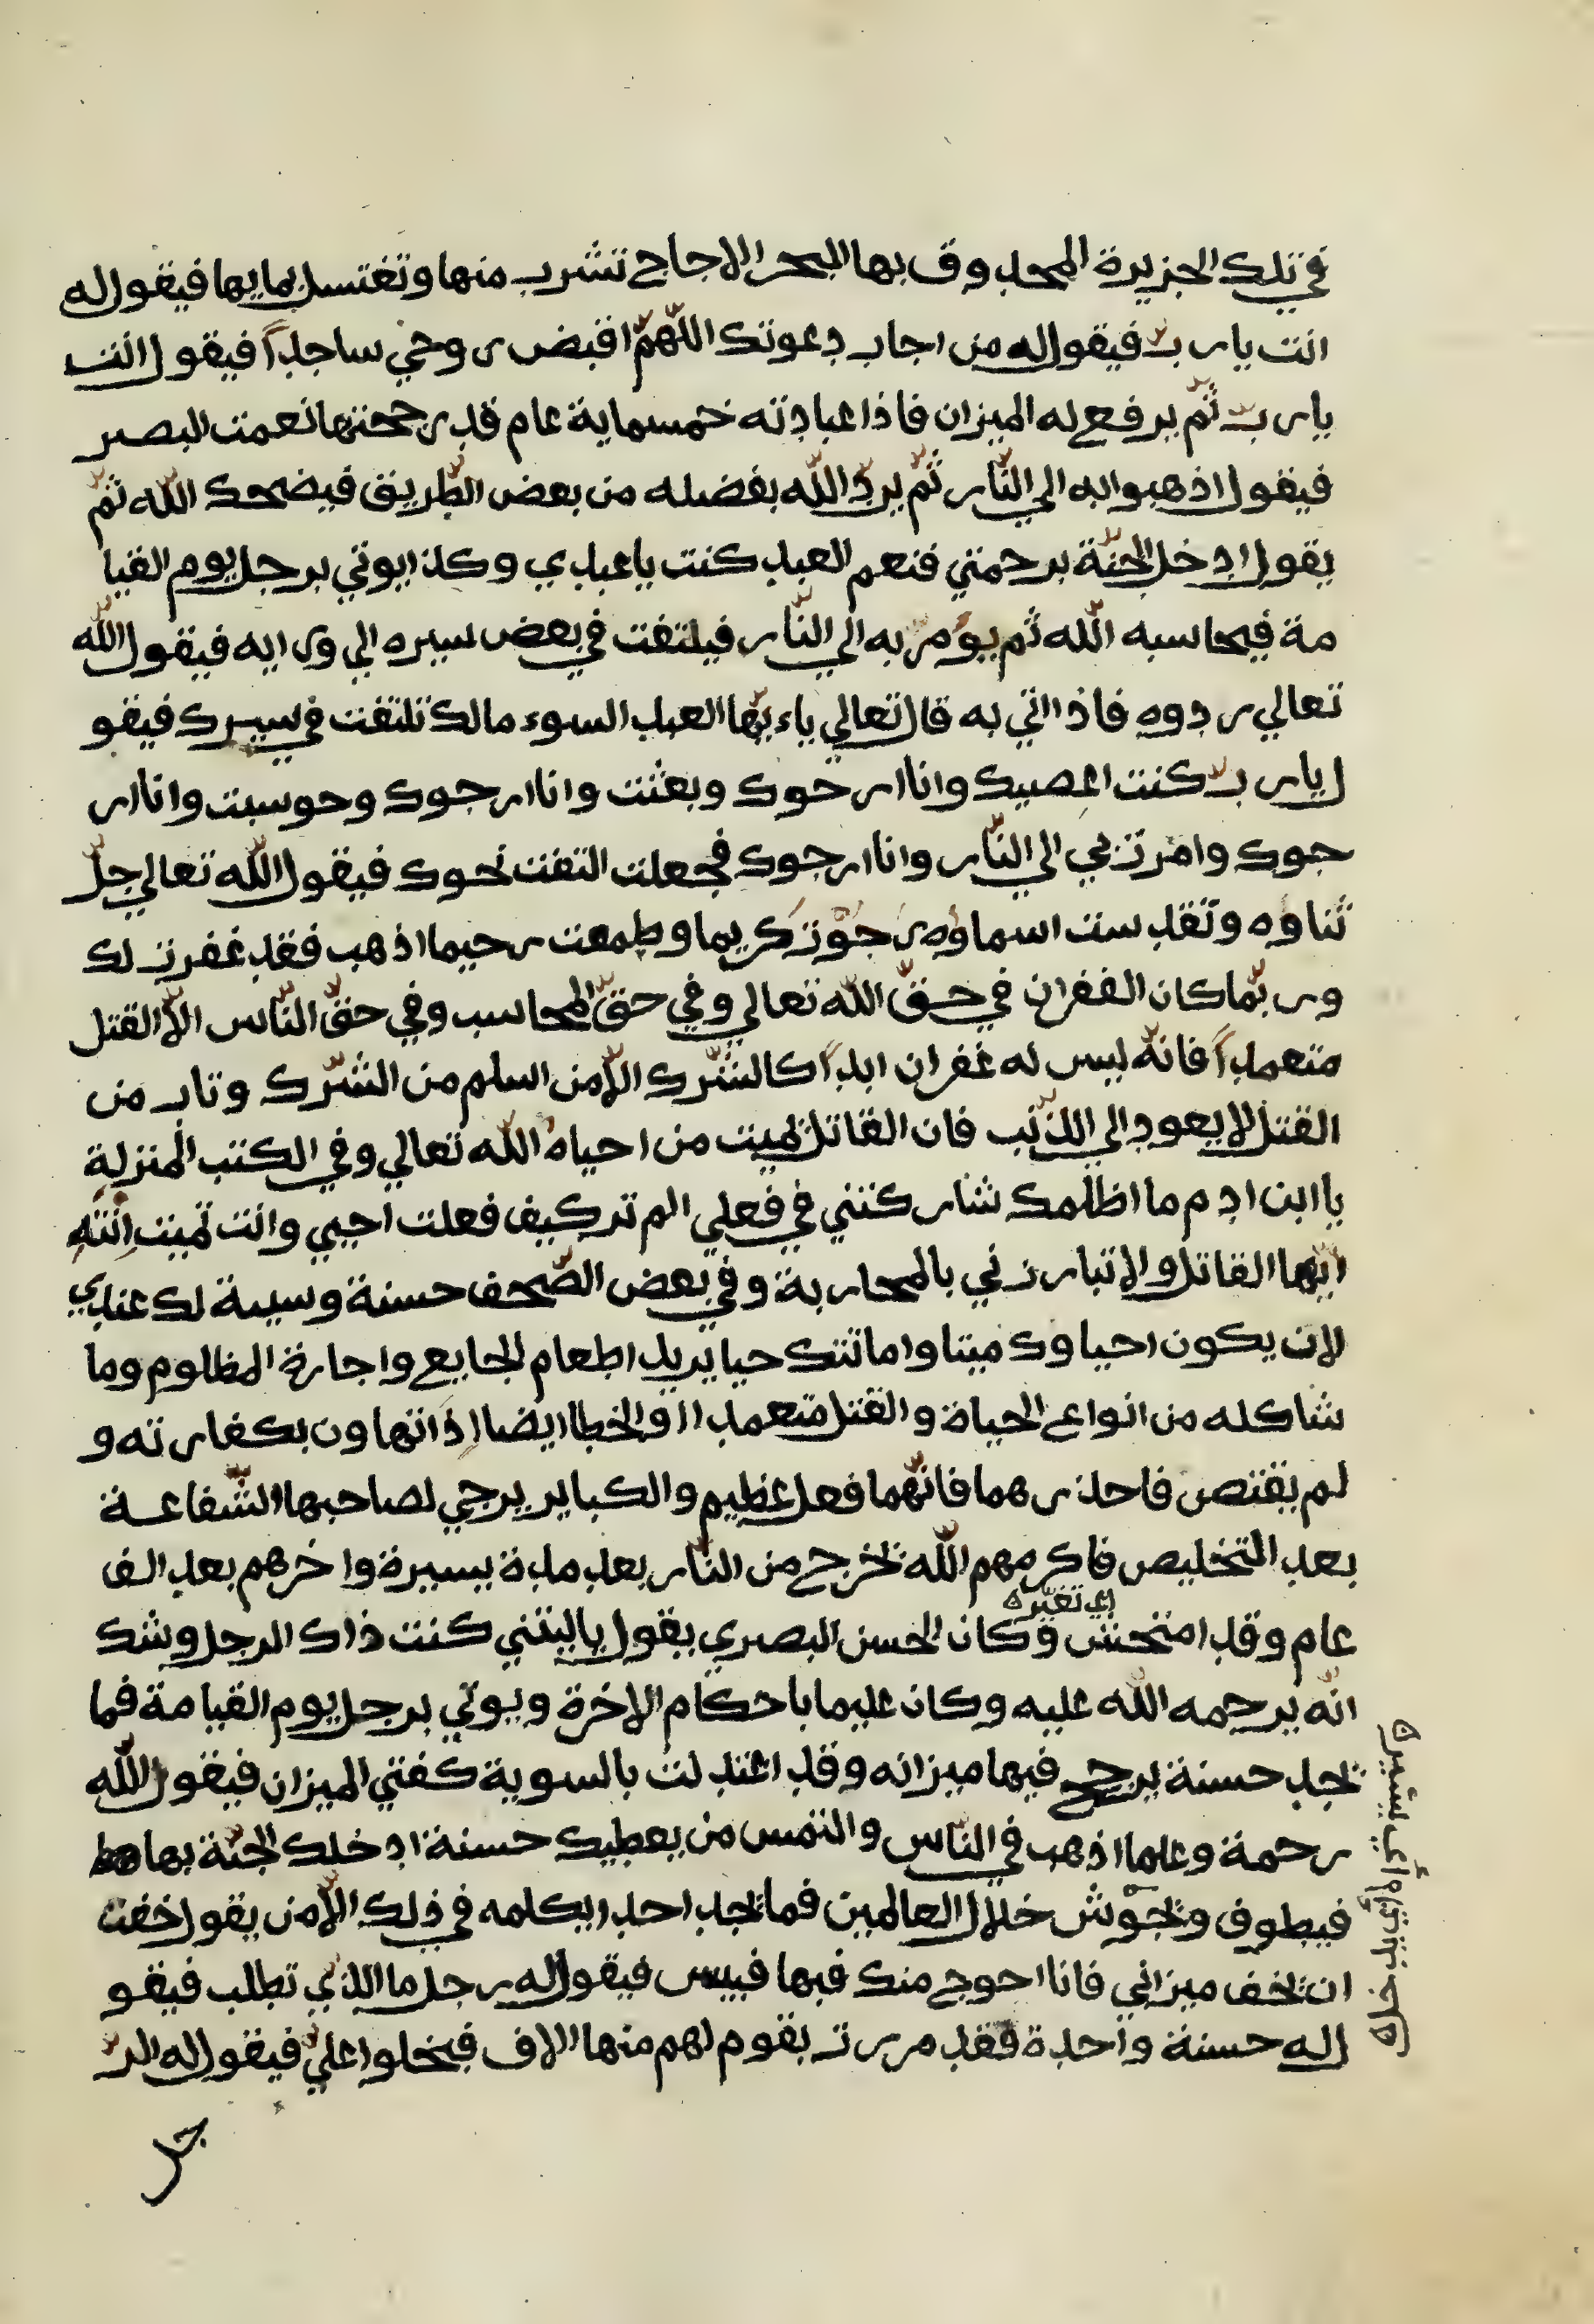 في تلك الجزيرة المحدوق بها البحر الاجاج تشرب منها وتغتسل بمايها فيقول له
انت يا رب فيقول له من اجاب دعوتك اللهمّ اقبض روحي ساجداً فيقول انت
يا رب ثمّ يرفع له الميزان فاذا عبادته خمسماية عام قد رجحتها نعمت البصر
فيقول اذهبوا به الي النّار ثمّ يردّ اللّه بفضله من بعض الطّريق فيضحك اللّه ثمّ
يقول ادخل الجنّة برحمتي فنعم العبد كنت يا عبدي وكذا يوتي برجل يوم القيا
مة فيحاسبه اللّه ثم يؤمر به الي النّار فيلتفت في بعض سيره الي ورايه فيقول اللّه
تعالي ردوه فاذا اتي به قال تعالي يا ءيّها العبد السوء مالك تلتفت في سيرك فيقو
ل يا رب كنت اعصيك وانا ارجوك وبعثت وانا ارجوك وحوسبت وانا ار
جوك وامرت بي الي النّار وانا ارجوك فجعلت التفت نحوك فيقول اللّه تعالي جلّ
ثناؤه وتقدست اسماؤه رجوت كريما وطمعت رحيما اذهب فقد غفرت لك
وربّما كان الغفران في حقّ اللّه تعالي وفي حقّ المحاسب وفي حقّ النّاس الاّ القتل
متعمداً فانّه ليس له غفران ابداً كالشّرك الاّ من اسلم من الشّرك وتاب من
القتل لا يعود الي الذّنب فان القاتل يميت من احياه اللّه تعالي وفي الكتب المنزلة
يا ابن ادم ما اظلمك شاركتني في فعلي الم تر كيف فعلت احيي وانت تميت انته
ايّها القاتل والا تبارزني بالمحاربة وفي بعض الصّحف حسنة وسيىة لك عندي
لان يكون احياوك ميتا واماتتك حيا يريد اطعام الجايع واجارة المظلوم وما
شاكله من انواع الحياة والقتل متعمدا او الخطا ايضا اذا تهاون بكفارته و
لم يقتص فاحذرهما فانّهما فعل عظيم والكباير يرجي لصاحبها الشّفاعة
بعد التخليص فاكرمهم اللّه تخرج من النّار بعد مدة يسيرة واخرهم بعد الف
اي تغيّر ه
عام وقد امتحش وكان الحسن البصري يقول يا ليتني كنت ذاك الرجل وشك
انّه يرحمه اللّه عليه وكان عليما باحكام الاخرة ويوتي برجل يوم القيامة فما
تجد حسنة يرجح فيها ميزانه وقد اعتدلت بالسوية كفتي الميزان فيقول اللّه
رحمة وعلما اذهب في النّاس والتمس من يعطيك حسنة ادخلك الجنّة بها
فيطوف وتجوش خلال العالمين فما تجد احدا يكلمه في ذلك الاّ من يقول خفت
ان تخف ميزاني فانا احوج منك فيها فييس فيقول له رجل ما الذي تطلب فيقو
ل له حسنة واحدة فقد مررت بقوم لهم منها الاف فبخلوا عليّ فيقول له الر
جل